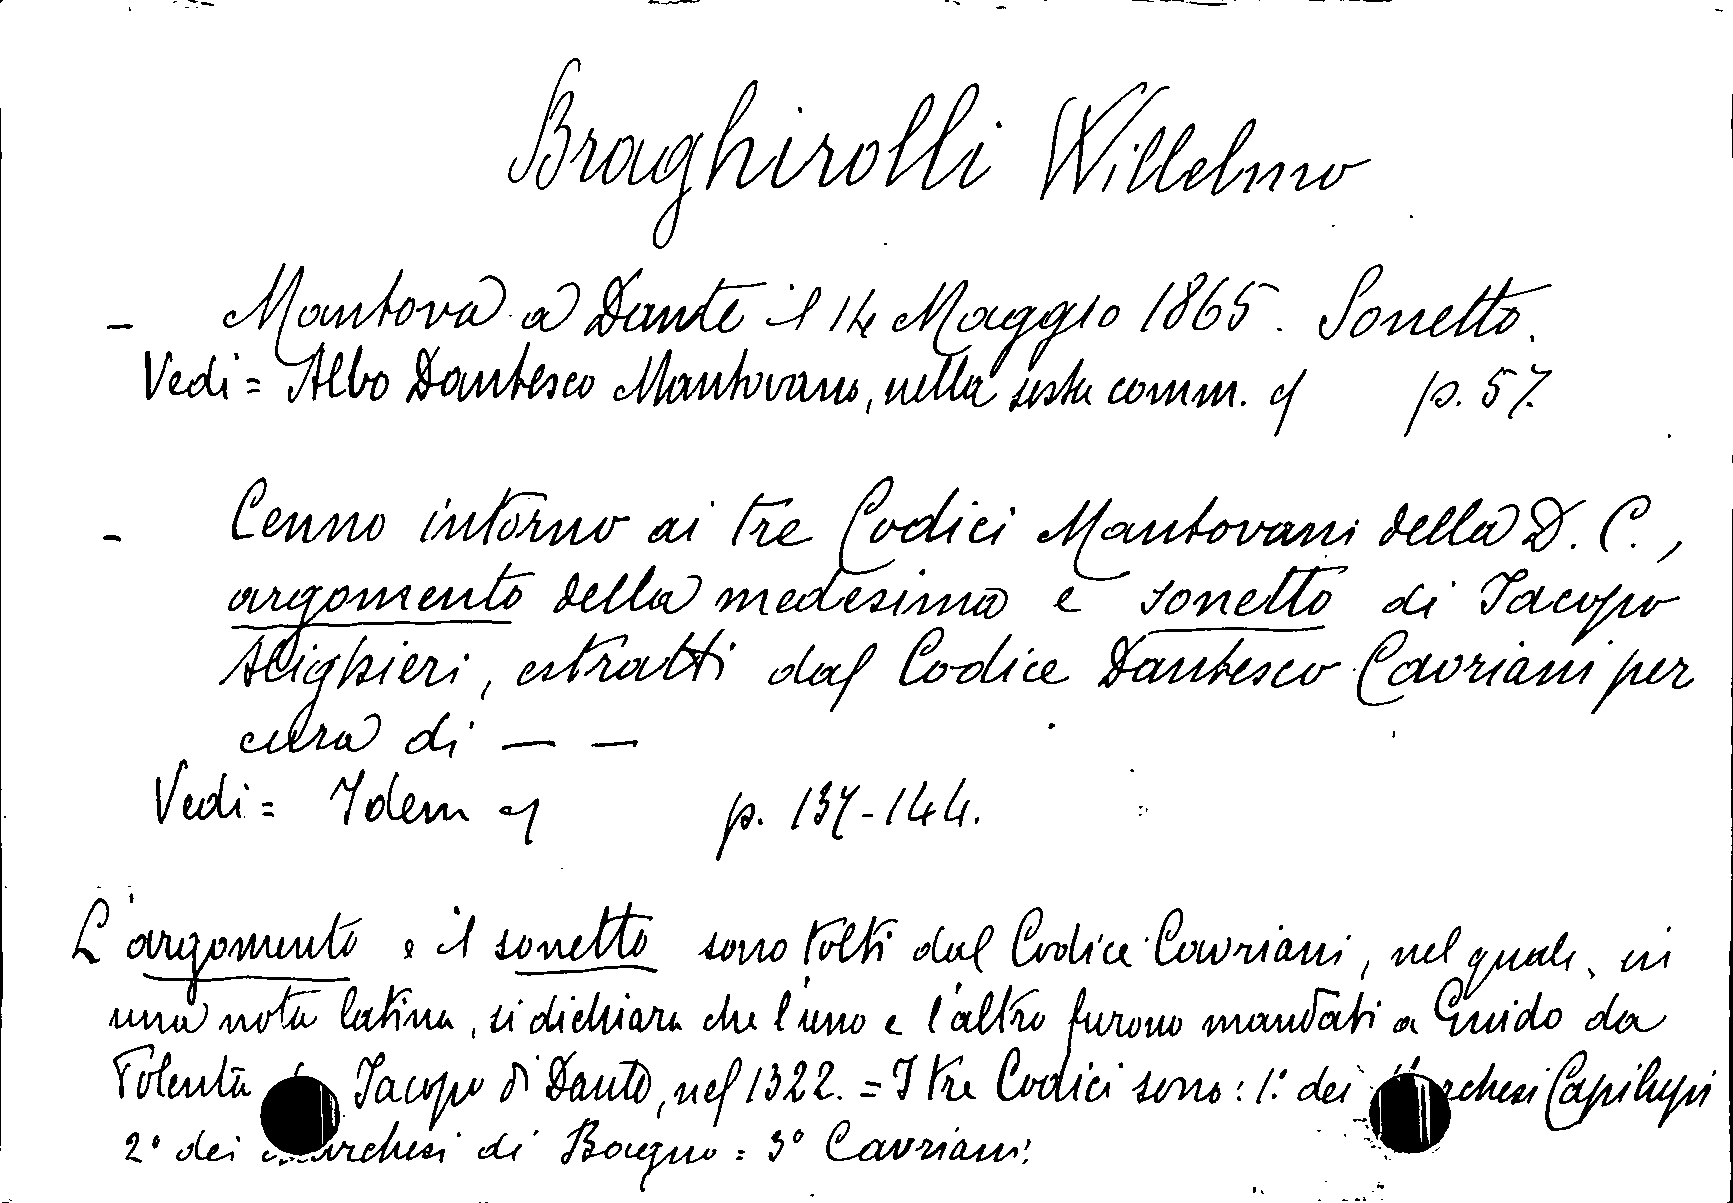 Braghirolli Willelmo
- Mantova a Dante il 14 Maggio 1865. Sonetto.
Vedi = Albo Dantesco Mantovano, nella sesta comm. p. 57.
- Cenno intorno ai tre Codici Mantovani della D. C.,
argomento della medesima e sonetto di Iacopo
Alighieri, estratti dal Codice Dantesco Cavriani per
cura di — —
Vedi = Idem p. 137-144.
L'argomento e il sonetto sono tolti dal Codice Cavriani, nel quale, in
una nota latina, si dichiara che l'uno e l'altro furono mandati a Guido da
Polenta Iacopo di Dante, nel 1322. = I tre Codici sono: 1.° dei Marchesi Capilupi
2° dei Marchesi di Bagno = 3° Cavriani.